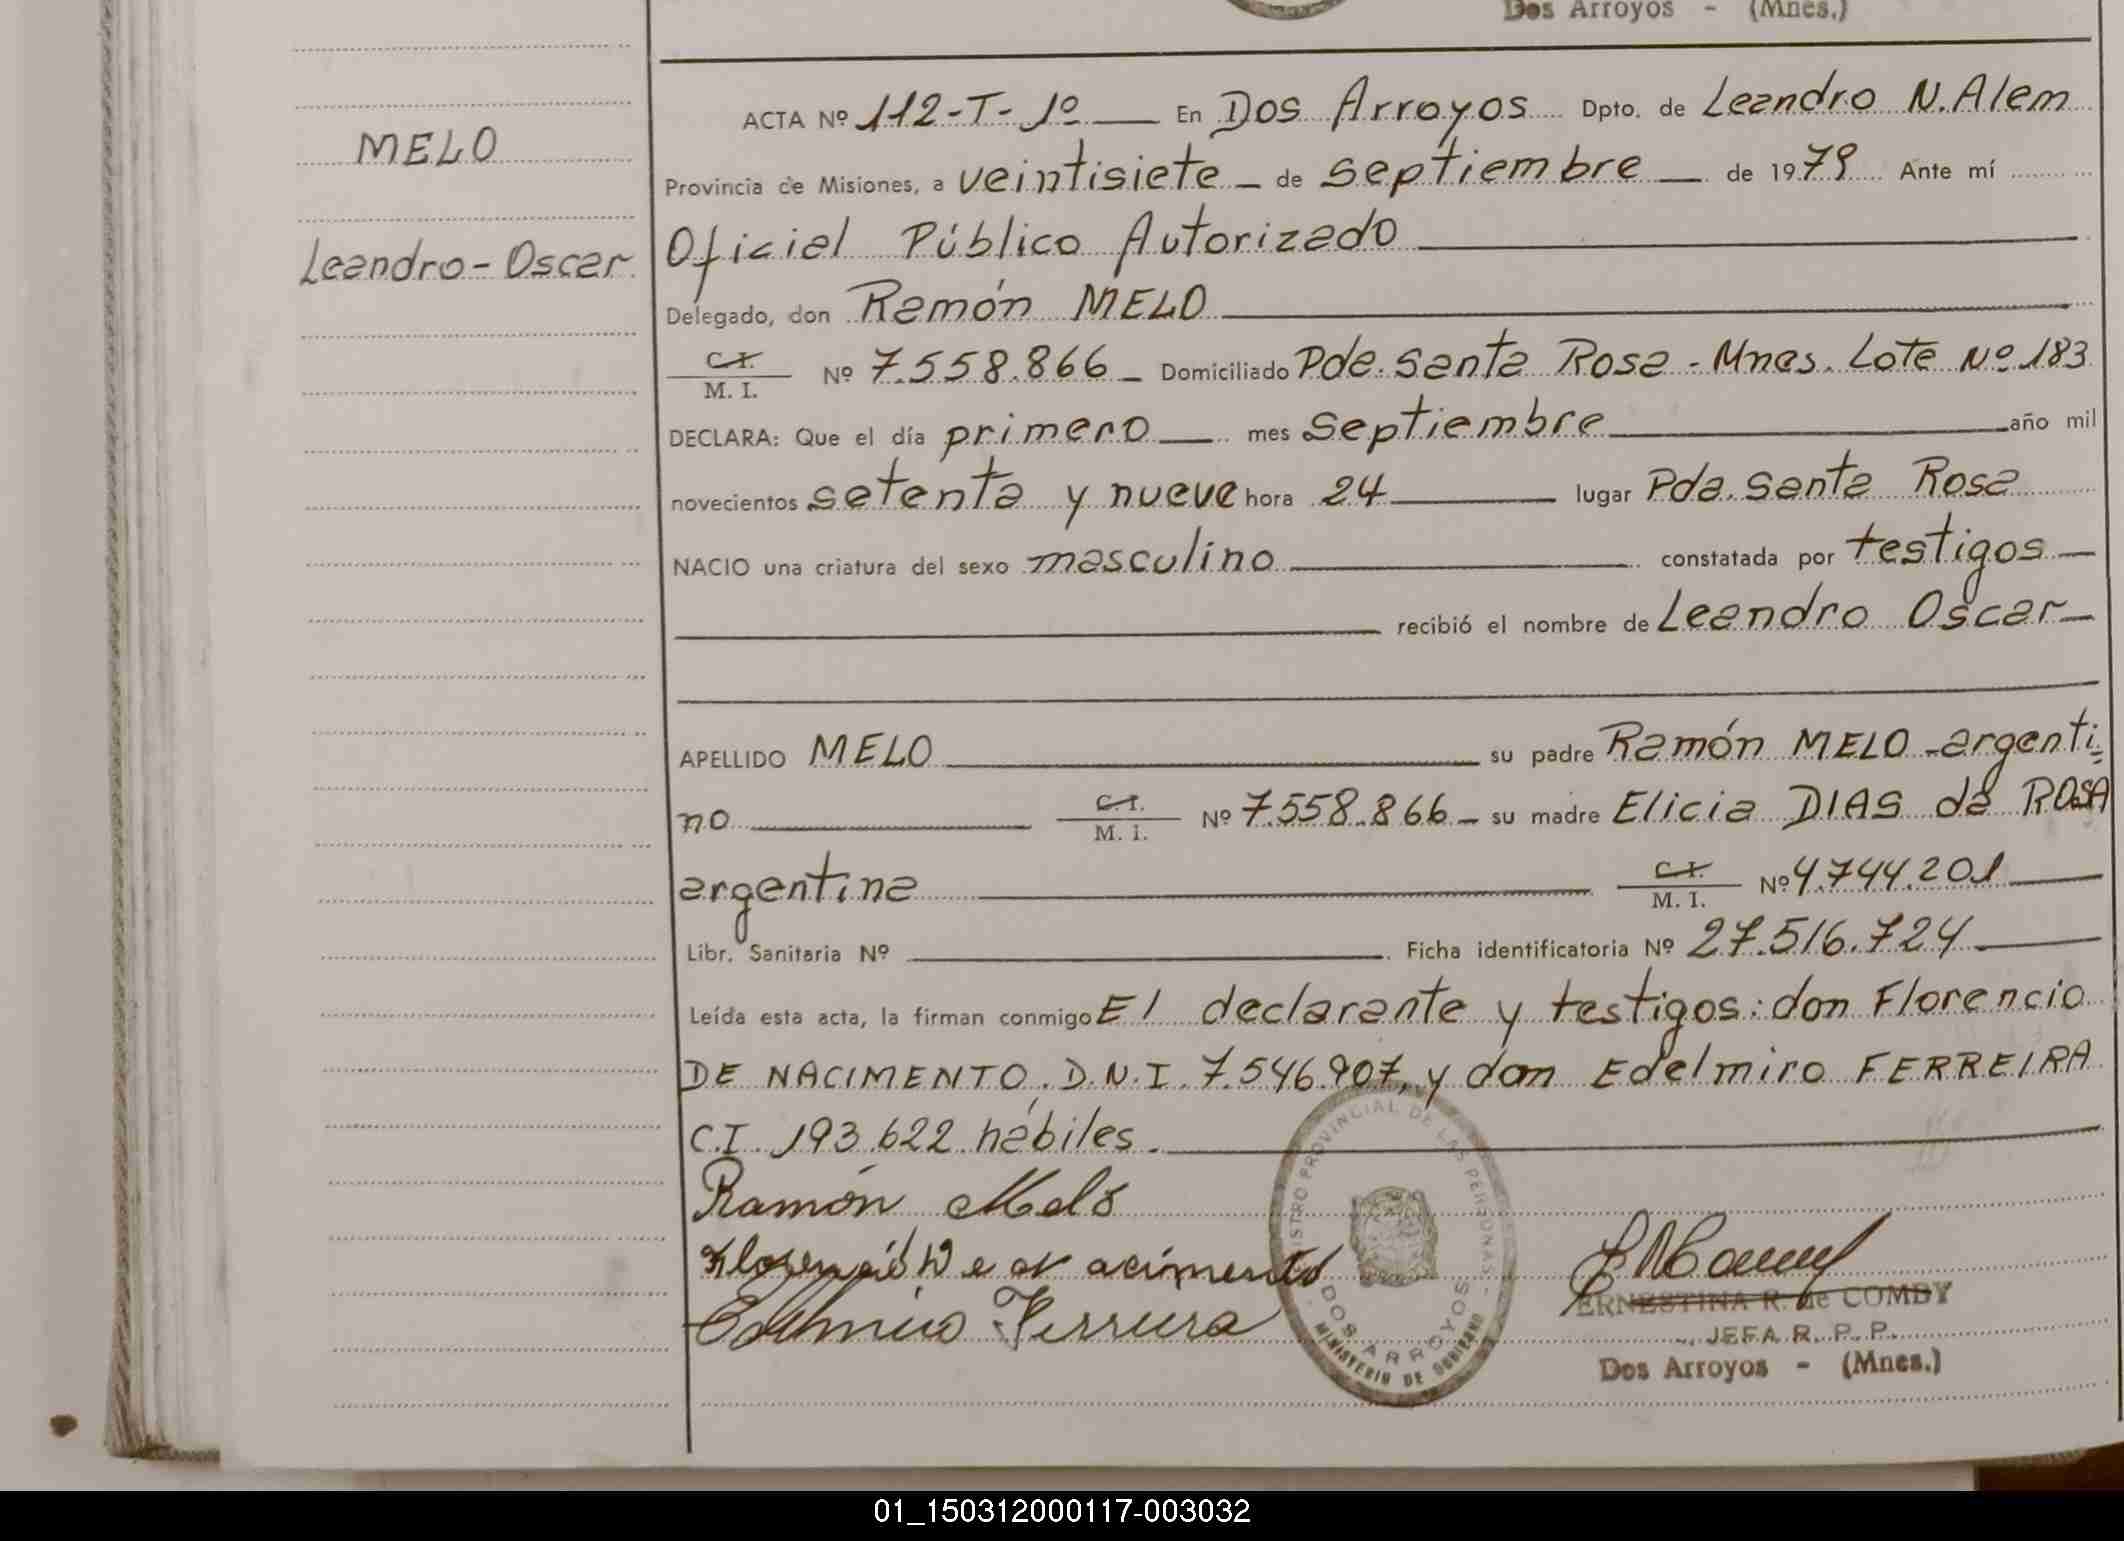 Dos Arroyos - (Mnes.)
MELO
Leandro - Oscar
ACTA Nº 112-T-1º En Dos Arroyos Dpto. de Leandro N. Alem
Provincia de Misiones, a veintisiete de septiembre de 1979 Ante mí
Oficial Público Autorizado
Delegado, don Ramón MELO
C.I.
M. I. Nº 7.558.866 - Domiciliado Pda. Santa Rosa - Mnes. Lote Nº 183
DECLARA: Que el día primero mes septiembre año mil
novecientos setenta y nueve hora 24 lugar Pda. Santa Rosa
NACIO una criatura del sexo masculino constatada por testigos
recibió el nombre de Leandro Oscar
APELLIDO MELO su padre Ramón MELO - argenti=
no C.I.
M. I. Nº 7.558.866 - su madre Elicia DIAS da ROSA
argentina C.I.
M. I. Nº 4.744.201
Libr. Sanitaria Nº Ficha identificatoria Nº 27.516.724
Leída esta acta, la firman conmigo El declarante y testigos: don Florencio
DE NACIMENTO, D.N.I. 7.546.907, y don Edelmiro FERREIRA
C.I. 193.622 hábiles.
Ramón Melo
Florencio De nacimento
Edelmiro Ferreira
REGISTRO PROVINCIAL DE LAS PERSONAS
DOS ARROYOS
MINISTERIO DE GOBIERNO
ERNESTINA R. de COMBY
JEFA R. P. P.
Dos Arroyos - (Mnes.)
01_150312000117-003032